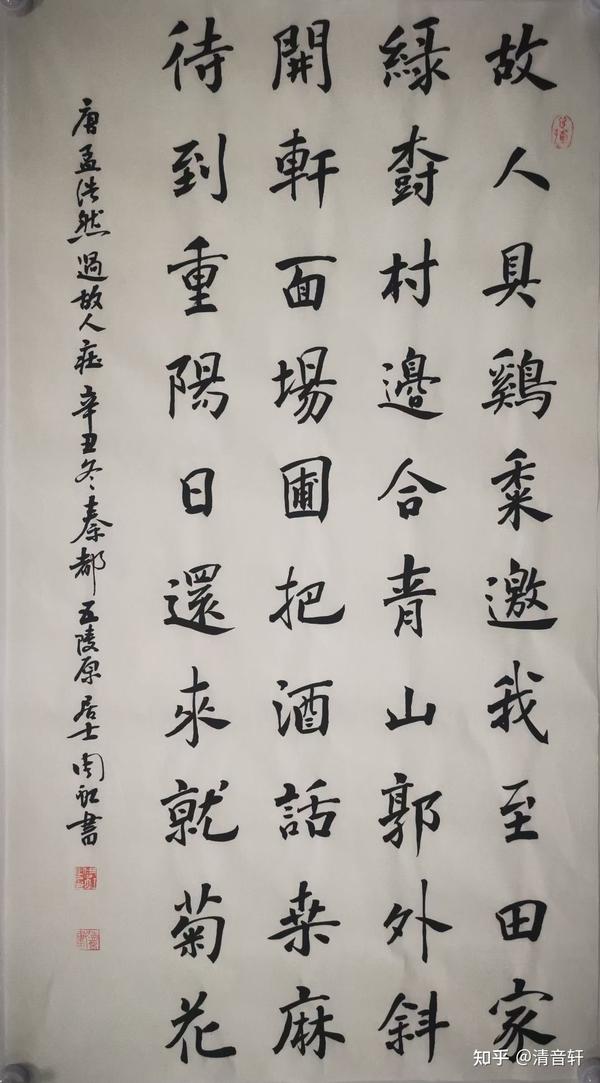 故人具鷄黍邀我至田家
綠樹村邊合青山郭外斜
開軒面場圃把酒話桒麻
待到重陽日還來就菊花
唐孟浩然過故人莊辛丑冬秦都五陵原居士周書
知乎 @清音轩